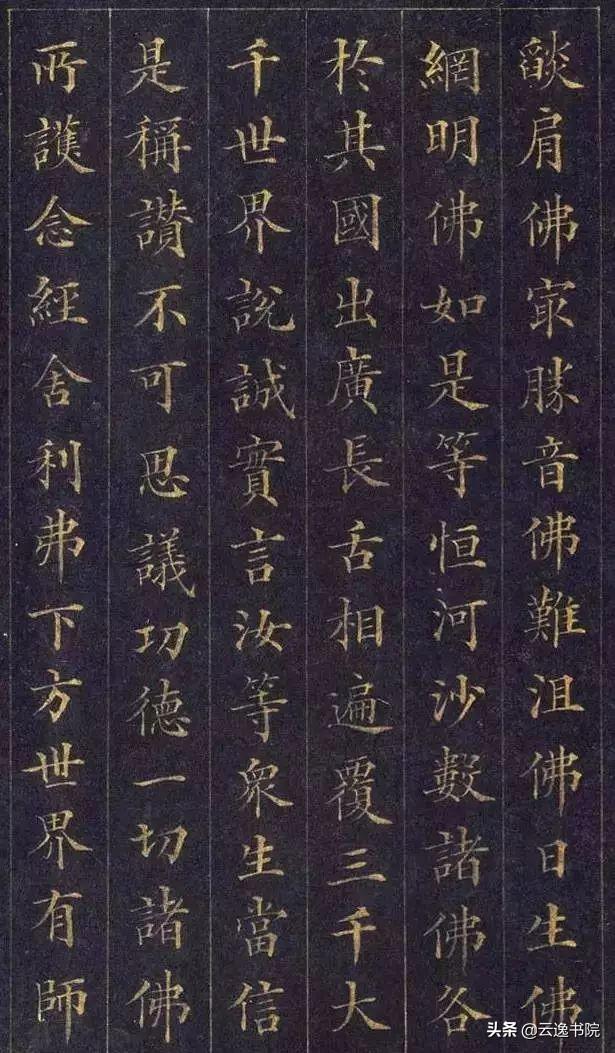 燄肩佛冣勝音佛難沮佛日生佛
網明佛如是等恒河沙數諸佛各
於其國出廣長舌相遍覆三千大
千世界說誠實言汝等衆生當信
是稱讃不可思議功德一切諸佛
所護念經舍利弗下方世界有師
头条 @云逸书院